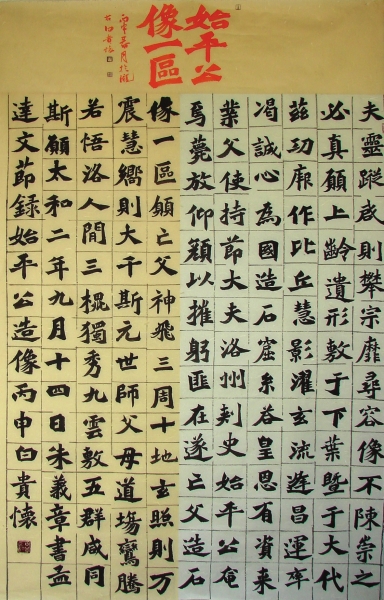 始平公
像一區
夫靈蹤啟則攀宗靡尋容像不陳崇之
必真願上齡遺形敷于下葉暨于大代
茲功厥作比丘慧影濯玄流邀昌運率
渴誠心為國造石窟系答皇恩有資來
葉父使持節大夫洛州刺史始平公奄
焉薨放仰顏以摧躬匪在遂亡父造石
像一區領亡父神飛三周十地玄照則万
震慧嚮則大千斯元世師父母道場鸞騰
若悟洛人間三槐獨秀九雲敷五群咸同
斯願太和二年九月十四日朱義章書孟
達文節錄始平公造像丙申白貴懷